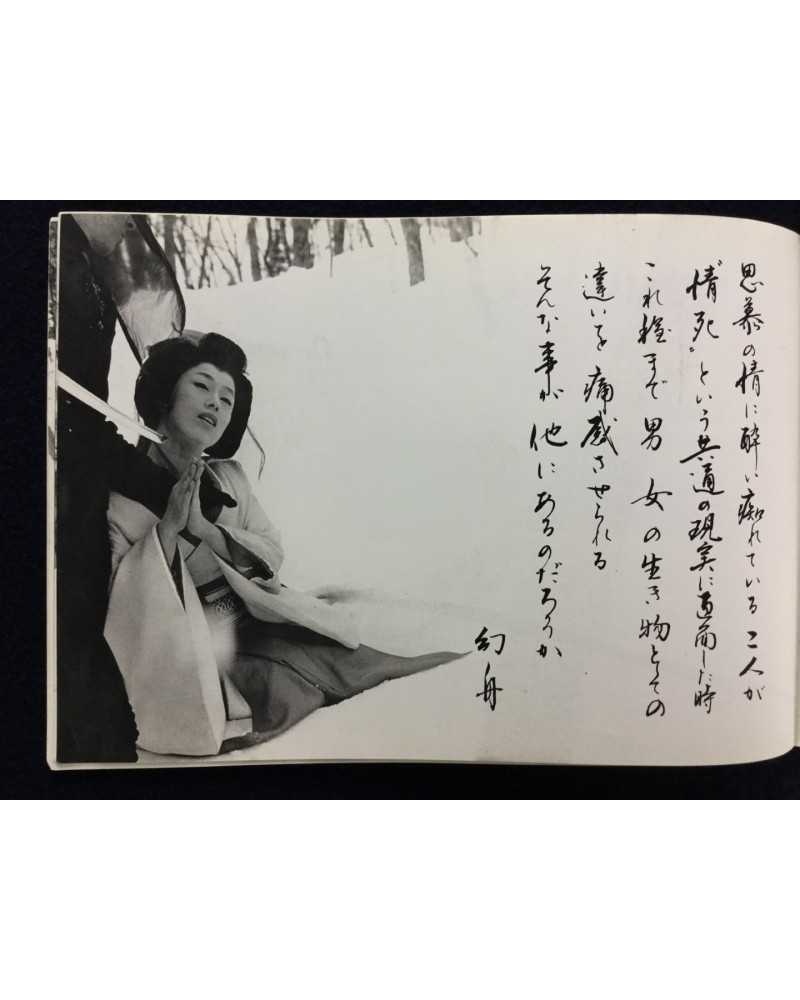 思慕の情に酔い痴れている二人が
〝情死〟という共通の現実に直面した時
これ程まで男 女の生き物としての
違いを痛感させられる
そんな事が他にあるのだろうか
幻舟